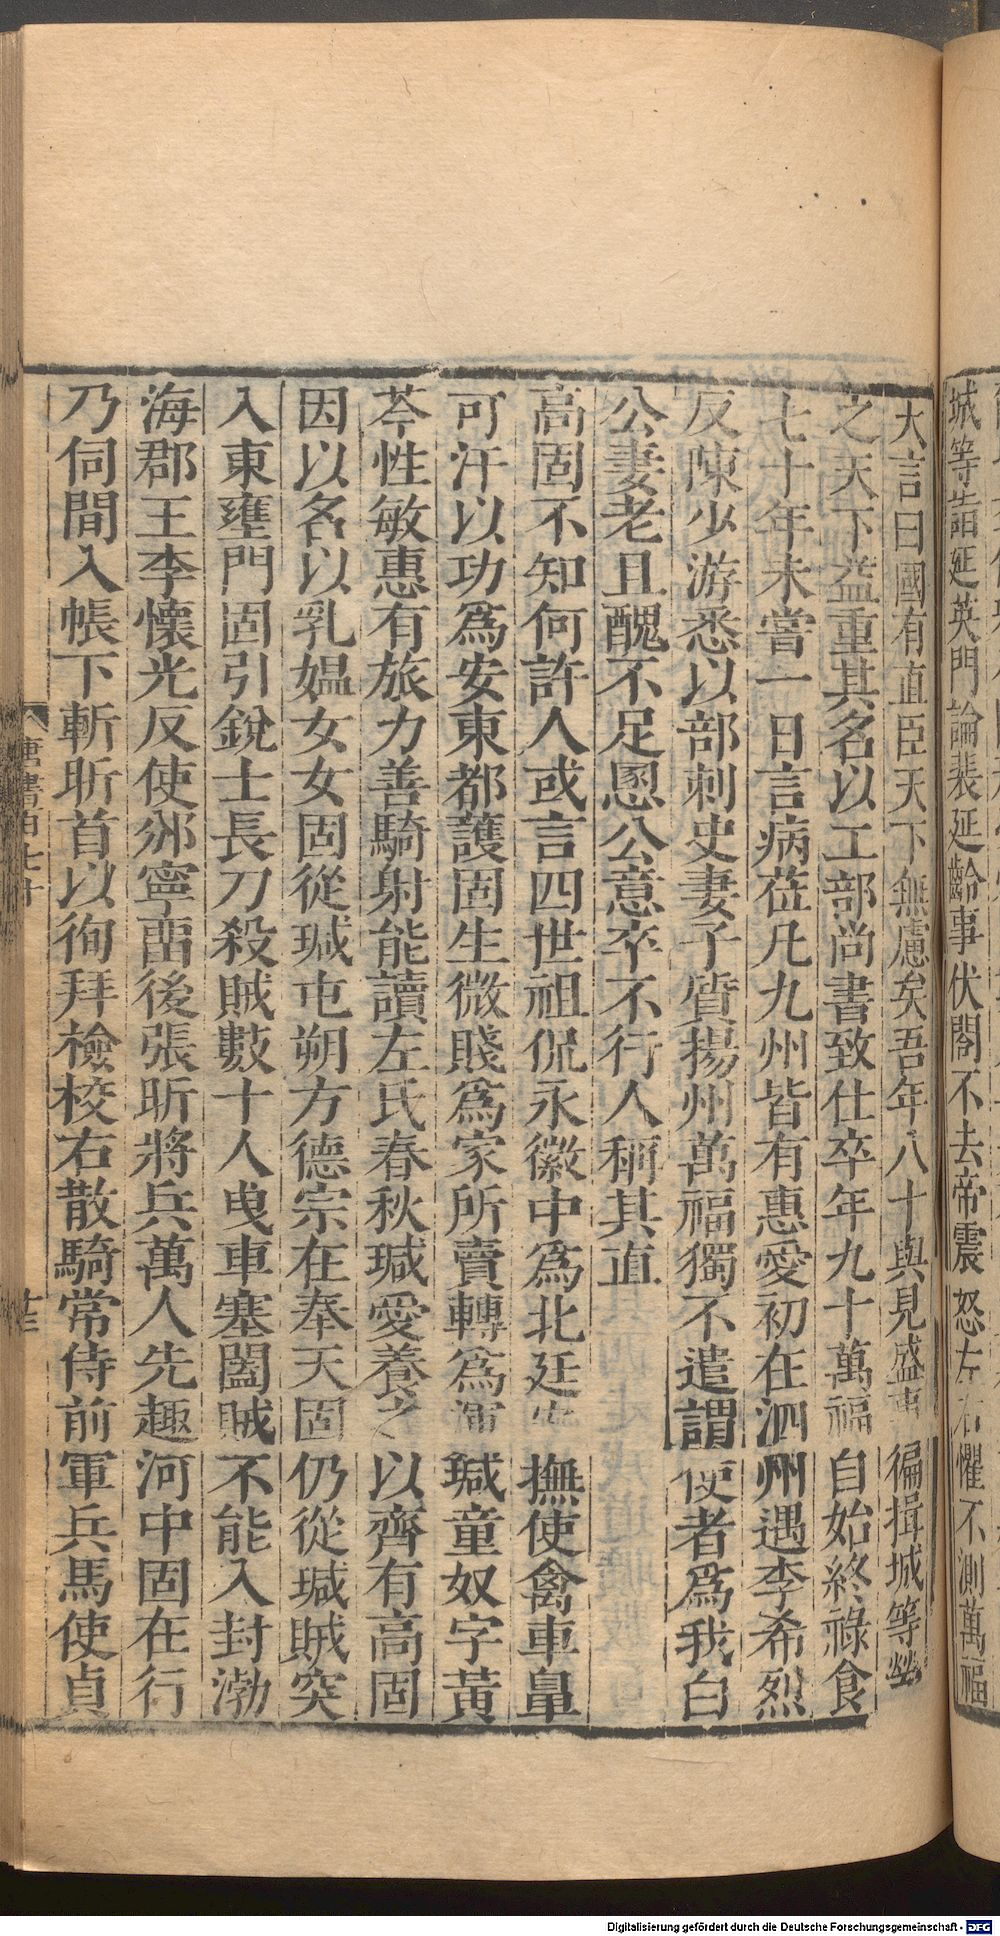 城等詣延英門論裴延齡事伏閤不去帝震怒左右懼不測萬福
大言曰國有直臣天下無慮矣吾年八十與見盛事徧揖城等
之天下益重其名以工部尚書致仕卒年九十萬福自始終祿食
七十年未嘗一日言病蒞凡九州皆有惠愛初在泗州遇李希烈
反陳少游悉以部刺史妻子質揚州萬福獨不遣謂使者爲我白
公妻老且醜不足慁公意卒不行人稱其直
高固不知何許人或言四世祖侃永徽中爲北廷安撫使禽車鼻
可汗以功爲安東都護固生微賤爲家所賣轉爲渾瑊童奴字黃
芩性敏惠有旅力善騎射能讀左氏春秋瑊愛養之以齊有高固
因以名以乳媼女女固從瑊屯朔方德宗在奉天固仍從瑊賊突
入東壅門固引銳士長刀殺賊數十人曳車塞闔賊不能入封渤
海郡王李懷光反使邠寧畱後張昕將兵萬人先趣河中固在行
乃伺間入帳下斬昕首以徇拜檢校右散騎常侍前軍兵馬使貞
唐書百七十
廿三
Digitalisierung gefördert durch die Deutsche Forschungsgemeinschaft - DFG